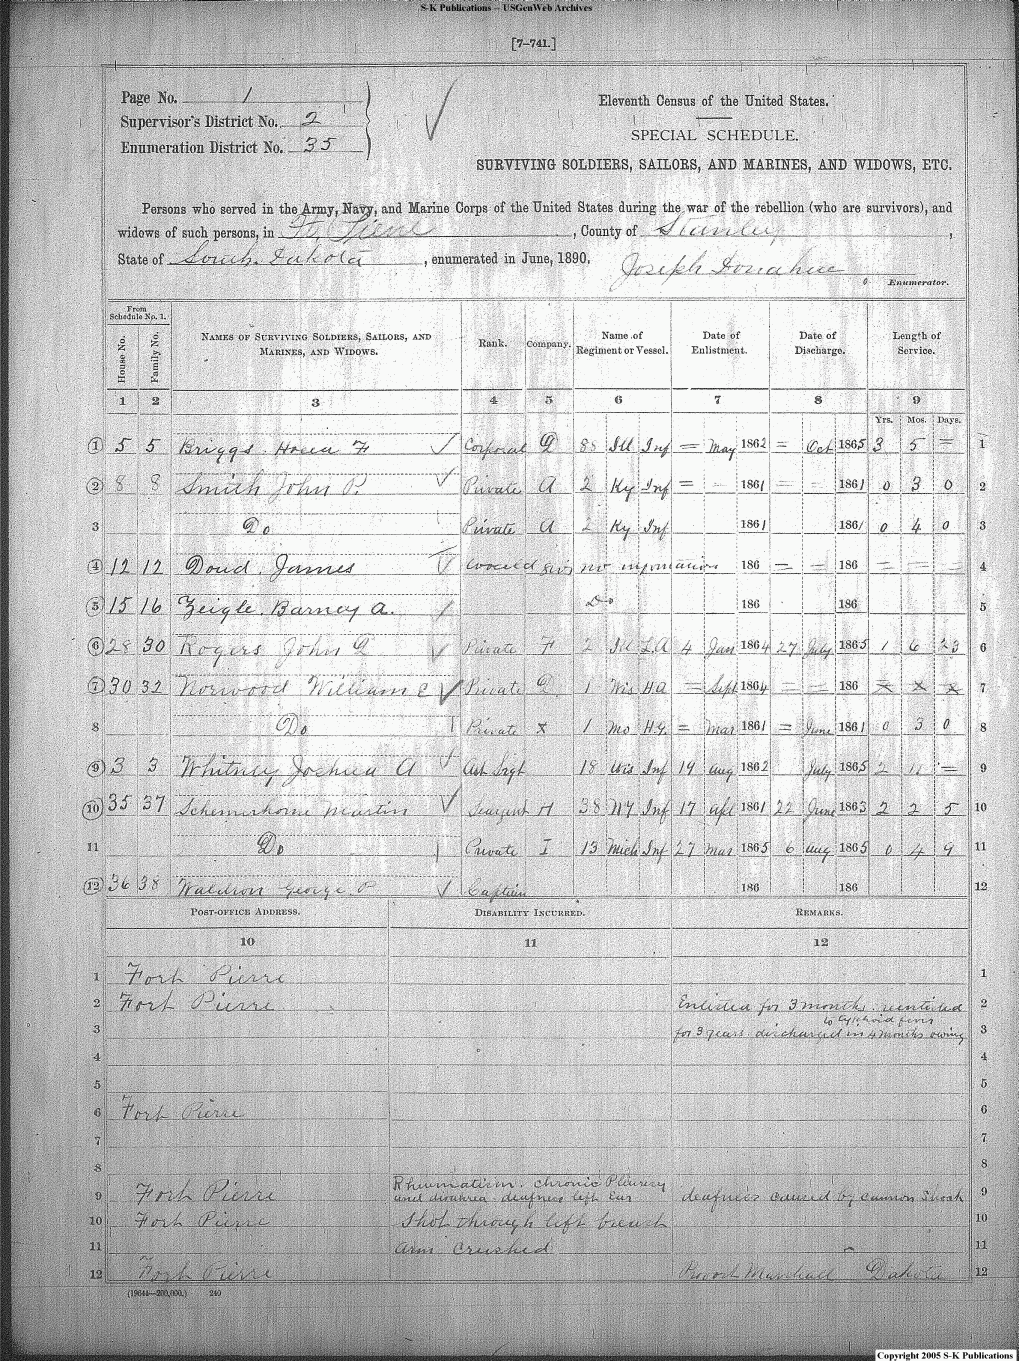 S-K Publications -- USGenWeb Archives
[7-741.]
Page No. 1
Supervisor's District No. 2
Enumeration District No. 35
Eleventh Census of the United States.
SPECIAL SCHEDULE.
SURVIVING SOLDIERS, SAILORS, AND MARINES, AND WIDOWS, ETC.
Persons who served in the Army, Navy, and Marine Corps of the United States during the war of the rebellion (who are survivors), and
widows of such persons, in Ft Pierre, County of Stanley,
State of South Dakota, enumerated in June, 1890,
Joseph Donahue
Enumerator.
From Schedule No. 1.
House No. Family No. NAMES OF SURVIVING SOLDIERS, SAILORS, AND MARINES, AND WIDOWS. Rank. Company. Name of Regiment or Vessel. Date of Enlistment. Date of Discharge. Length of Service.
1 2 3 4 5 6 7 8 9
Yrs. Mos. Days.
1 5 5 Briggs F Corporal 88 Ill Inf = May 1862 = Oct 1865 3 5 = 1
2 8 8 Smith John P. Private A 2 Ky Inf = - 1861 = = 1861 0 3 0 2
3 Do Private A 2 Ky Inf 1861 1861 0 4 0 3
4 12 12 Doud James would give no information 186 = = 186 = = = 4
5 15 16 Zeigle Barney A. Do 186 186 5
6 28 30 Rogers John Private F 2 Ill L.A 4 Jan 1864 27 July 1865 1 6 23 6
7 30 32 Norwood William E Private 1 Wis HA = Sept 1864 = = 186 x x x 7
8 Do Private x 1 Mo H.G. = Mar 1861 = June 1861 0 3 0 8
9 3 3 Whitney Joshua A Srgt 18 Wis Inf 19 Aug 1862 July 1865 2 11 = 9
10 35 37 Schemerhorne Martin H 38 NY Inf 17 Apl 1861 22 June 1863 2 2 5 10
11 Do Private I 13 Mich Inf 27 Mar 1865 6 Aug 1865 0 4 9 11
12 36 38 Waldron George P Captain 186 186 12
POST-OFFICE ADDRESS. DISABILITY INCURRED. REMARKS.
10 11 12
1 Fort Pierre 1
2 Fort Pierre Enlisted for 3 months. reenlisted 2
to typhoid fever
3 for 3 years discharged in 4 months owing 3
4 4
5 5
6 Fort Pierre 6
7 7
8 8
Rheumatism. chronic Pleuresy
9 Fort Pierre and diorhea. deafness left ear deafness caused by cannon shock 9
10 Fort Pierre Shot through left breast 10
11 arm crushed 11
12 Fort Pierre Provost Marshall Dakota 12
(19644—200,000.) 240
Copyright 2005 S-K Publications